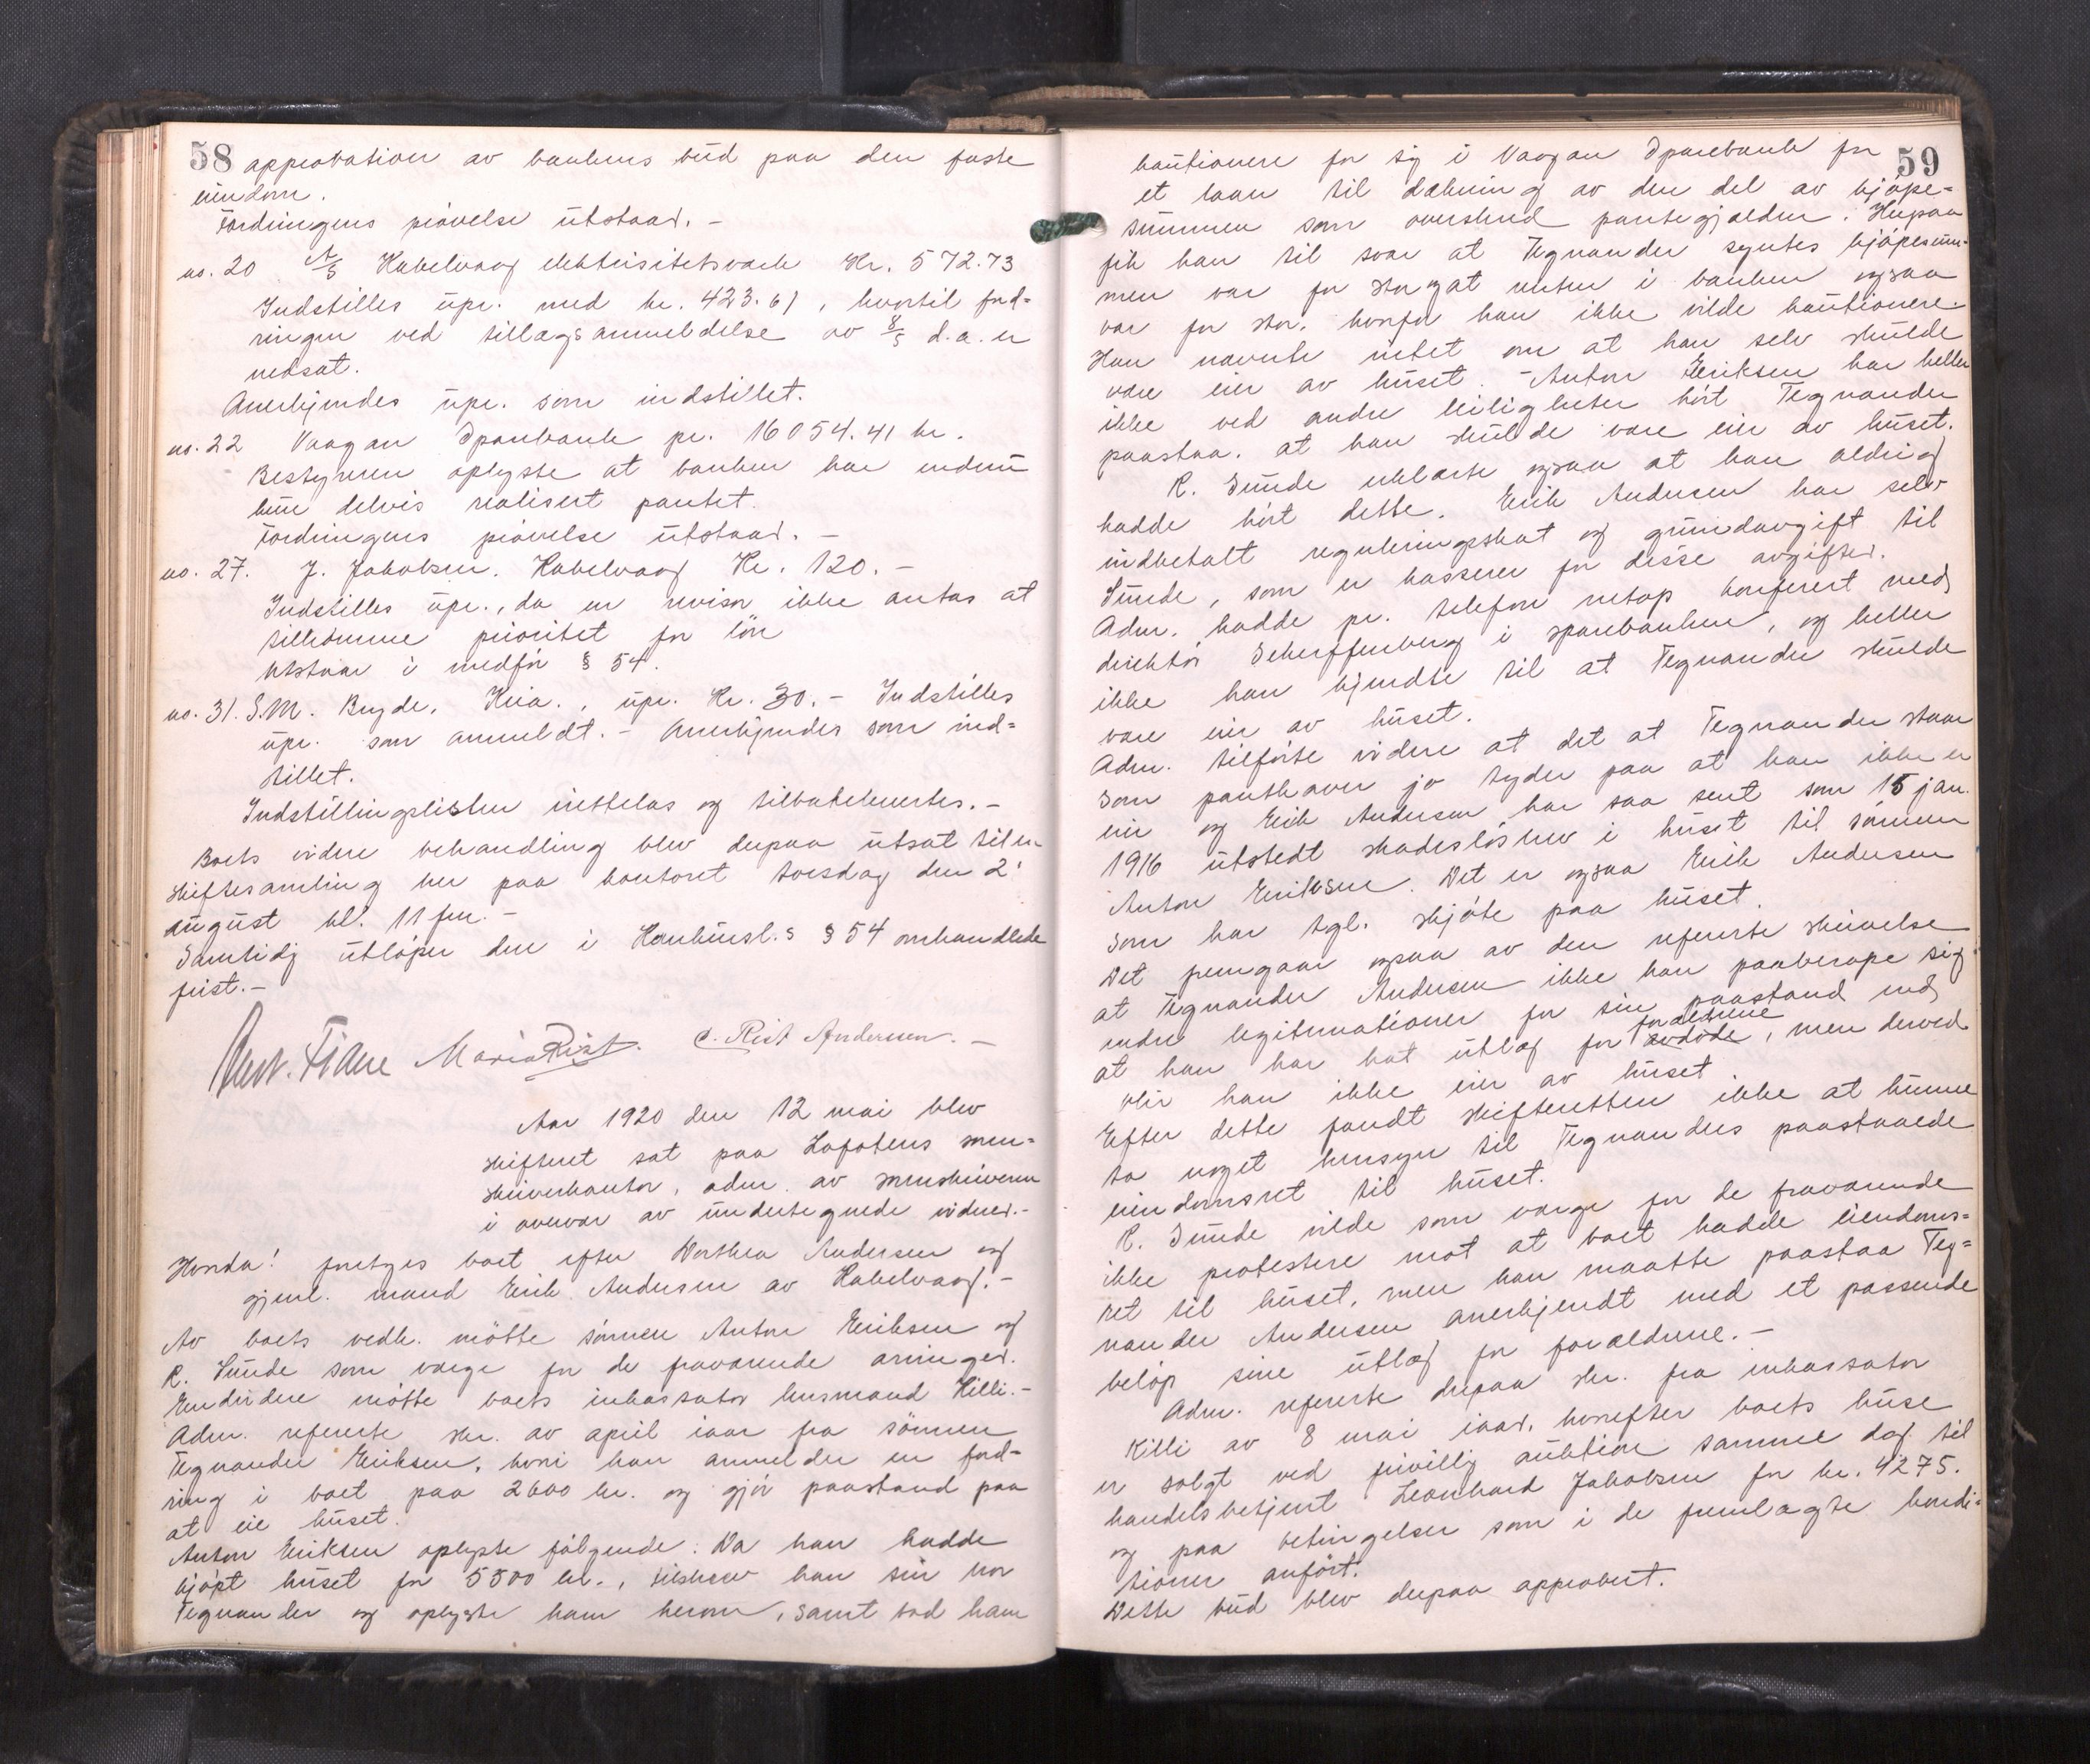 58 approbation av bankens bud paa den faste
eiendom.
Fordringens prøvelse utstaar. -
no. 20 A/S Kabelvaag elektrisitetsverk Kr. 572.73
Indstilles upr. med kr. 423.61, hvortil ford=
ringen ved tillægsanmeldelse av 8/5 d.a. er
nedsat.
Anerkjendes upr. som indstillet.
no. 22 Vaagan Sparebank pr. 16054.41 kr.
Bestyreren oplyste at banken har endnu
kun delvis realisert pantet.
Fordringens prøvelse utstaar. -
no. 27. J. Jakobsen. Kabelvaag Kr. 120. -
Indstilles upr., da en revisor ikke antas at
tilkomme prioritet for løn
Utstaar i medfør § 54.
no. 31. S.M. Bryde, Kria., upr. Kr. 30. - Indstilles
upr. som anmeldt. - Anerkjendes som ind=
stillet.
Indstillingslisten vedtokes og tilbakeleveres. -
Boets videre behandling blev derpaa utsat til en
skiftesamling her paa kontoret torsdag den 2'
august kl. 11 fm. -
Samtidig utløper den i Konkursl.s § 54 omhandlede
frist. -
Maria Rist. C. Rist Andersen. -
Aar 1920 den 12 mai blev
skifteret sat paa Lofotens soren=
skriverkontor, adm. av sorenskriveren
i overvær av undertegnede vidner. -
Hvorda! foretoges boet efter Dorthea Andersen og
gjenl. mand Erik Andersen av Kabelvaag. -
Av boets vedk. møtte sønnen Anton Eriksen og
R. Sunde som verge for de fraværende arvinger.
Endvidere møtte boets inkassator lensmand Killi. -
Adm. refererte skr. av april iaar fra sønnen
Tegnander Eriksen, hvori han anmelder en ford=
ring i boet paa 2600 kr. og gjør paastand paa
at eie huset.
Anton Eriksen oplyste følgende: Da han hadde
kjøpt huset for 5500 kr., tilskrev han sin bror
Tegnander og oplyste ham herom, samt bad ham
59
kautionere for sig i Vaagan Sparebank for
et laan til dækning av den del av kjøpe=
summen som overskred pantegjælden. Herpaa
fik han til svar at Tegnander syntes kjøpesum-
men var for stor og at renten i banken ogsaa
var for stor, hvorfor han ikke vilde kautionere.
Han nævnte intet om at han selv skulde
være eier av huset. - Anton Eriksen har heller
ikke ved andre leiligheter hørt Tegnander
paastaa, at han skulde være eier av huset.
R. Sunde erklærte ogsaa at han aldrig
hadde hørt dette. Erik Andersen har selv
indbetalt reguleringsskat og grundavgift til
Sunde, som er kasserer for disse avgifter.
Adm. hadde pr. telefon netop konferert med
direktør Scherffenberg i sparebanken, og heller
ikke han kjendte til at Tegnander skulde
være eier av huset.
Adm. tilførte videre at det at Tegnander staar
som panthaver jo tyder paa at han ikke er
eier og Erik Andersen har saa sent som 15 jan.
1916 utstedt skadesløsbrev i huset til sønnen
Anton Eriksen. Det er ogsaa Erik Andersen
som har tgl. skjøte paa huset.
Det fremgaar ogsaa av den refererte skrivelse
at Tegnander Andersen ikke kan paaberope sig
andre legitimationer for sin paastand end
at han har hat utlæg for forældrene avdøde, men derved
blir han ikke eier av huset.
Efter dette fandt skifteretten ikke at kunne
ta noget hensyn til Tegnanders paastaaede
eiendomsret til huset.
R. Sunde vilde som verge for de fraværende
ikke protestere mot at boet hadde eiendoms=
ret til huset, men han maatte paastaa Teg=
nander Andersen anerkjendt med et passende
beløp sine utlæg for forældrene. -
Adm. refererte derpaa skr. fra inkassator
Killi av 8 mai iaar, hvorefter boets huse
er solgt ved frivillig auktion samme dag til
handelsbetjent Leonhard Jakobsen for kr. 4275.
og paa betingelser som i de fremlagte kondi=
tioner anført.
Dette bud blev derpaa approbert.